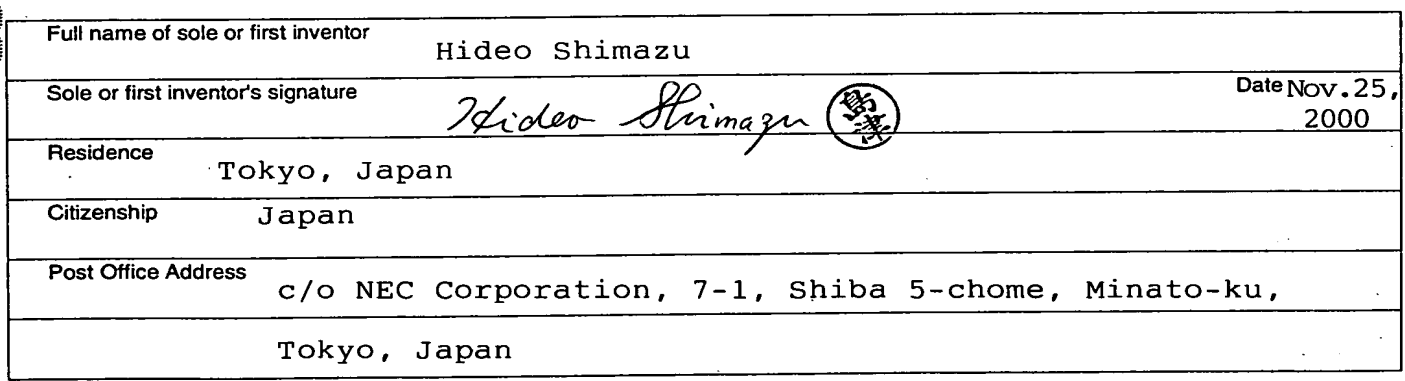 Full name of sole or first inventor
Hideo Shimazu
Sole or first inventor's signature
Hideo Shimazu 島津
Date Nov.25,
2000
Residence
Tokyo, Japan
Citizenship Japan
Post Office Address
c/o NEC Corporation, 7-1, Shiba 5-chome, Minato-ku,
Tokyo, Japan